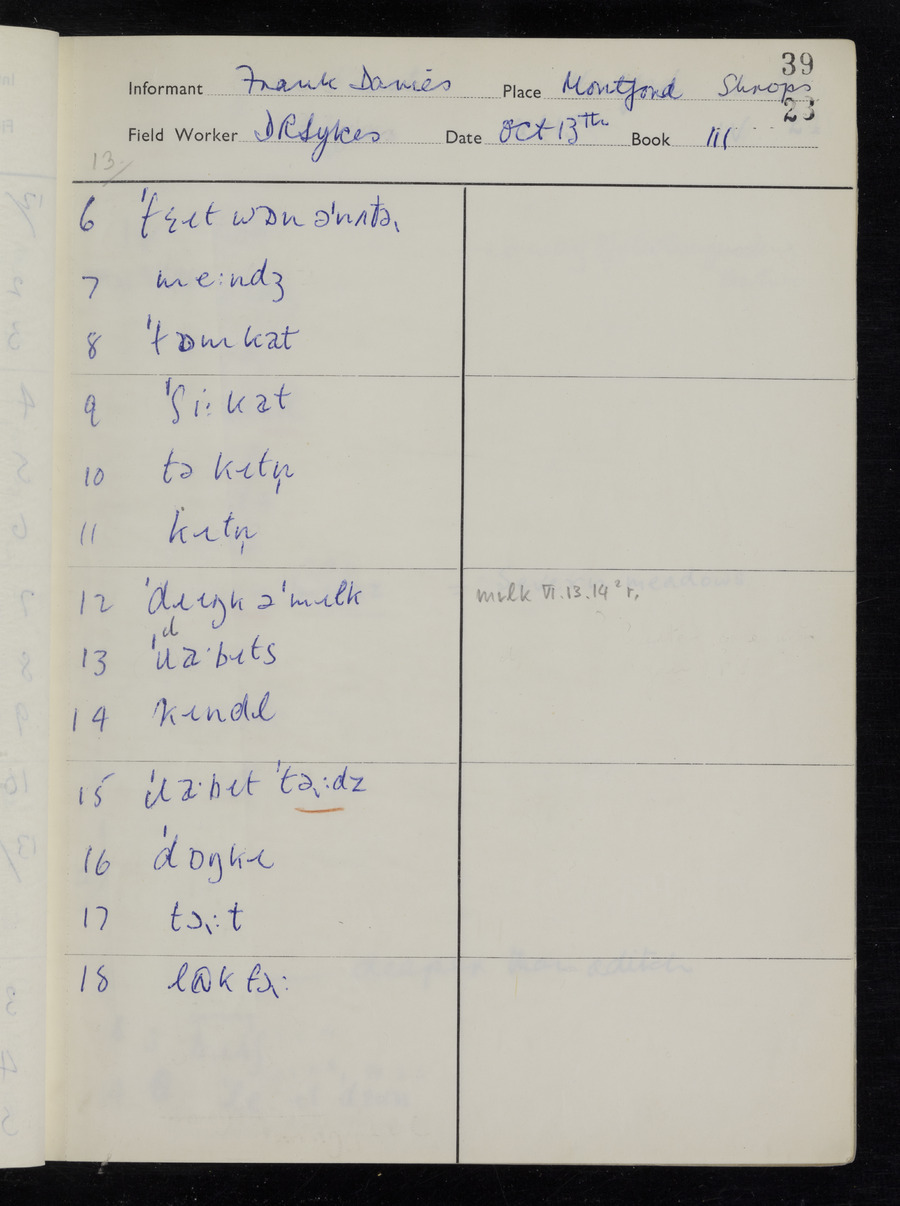 39
Informant Frank Davies Place Montford Shrops
23
Field Worker DRSykes Date Oct 13th Book III
13
6 ˈfɛɪt wɒn əˈnʌðə˞
7 meːndʒ
8 ˈtɒmkat
9 ˈʃiːkat
10 tə kɪtn̩
11 kɪtn̩
12 ˈdɹɪŋk əˈmɪlk milk VI.13.14² r.
13 ˈɹaˑbɪts
14 kɪndl
15 ˈɹaˑbɪt ˈtəːdz
16 ˈdɒŋkɪ
17 təːt
18 lɒk tə˞ː